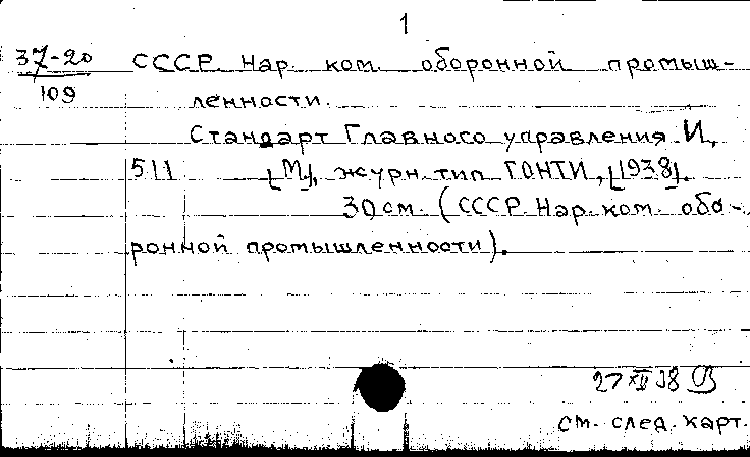 1
37-20 СССР. Нар. ком. оборонной промыш-
109 ленности.
Стандарт Главного управления И,
511 [М], журн. тип. ГОНТИ, [1938].
30 см. (СССР. Нар. ком. обо-
ронной промышленности).
27 XII 38
см. след. карт.